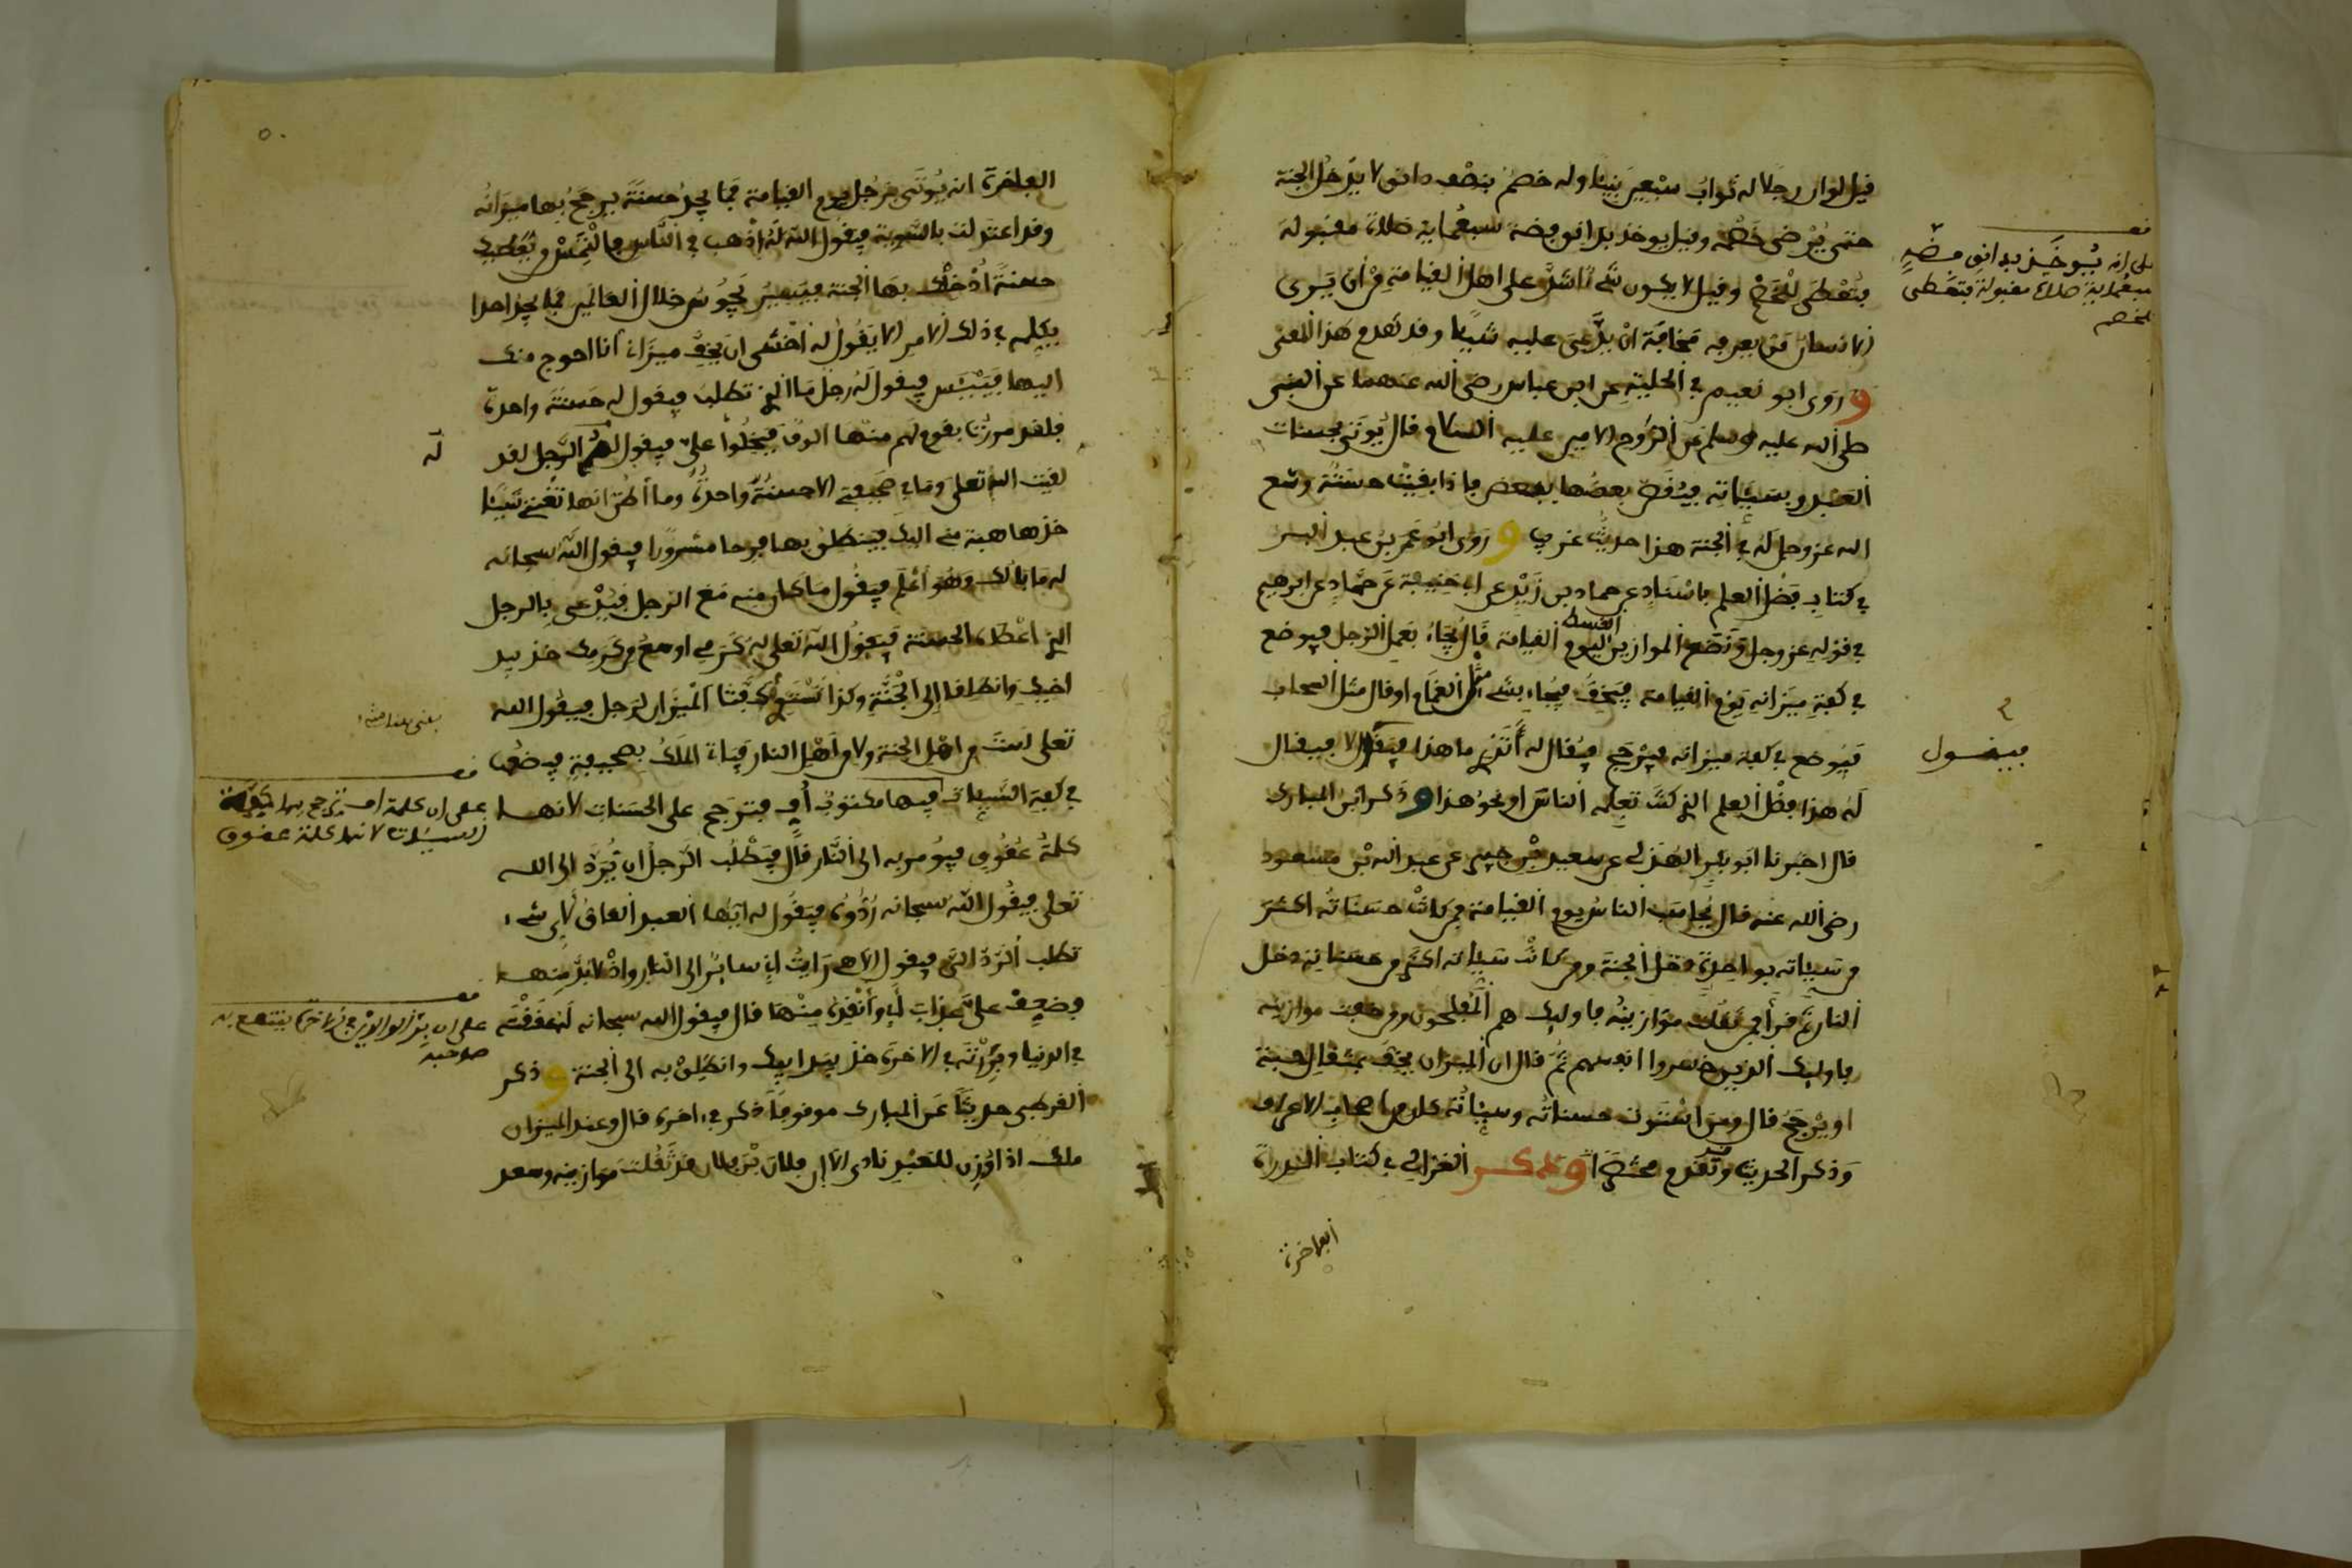 قيل لو ان رجلا له ثواب سبعين نبيئا وله خصم بنصف دانق لا يدخل الجنة
حتى يرضى خصمه وقيل يوخذ بدانق فضة سبعماية صلاة مقبولة
فتعطى للخصم وقيل لا يكون شيء اشد على اهل القيامة من ان يرى
الانسان من يعرفه مخافة ان يدعى عليه شيئا وقد تقدم هذا المعنى
وروى ابو نعيم في الحلية عن ابن عباس رضي الله عنهما عن النبي
صلى الله عليه وسلم عن الروح الامين عليه السلام قال يوتى بحسنات
العبد وبسيئاته فيقص بعضها ببعض فاذا بقيت حسنة وسع
الله عز وجل له في الجنة هذا حديث غريب وروى ابو عمر بن عبد البر
في كتاب فضل العلم باسناد عن حماد بن زيد عن ابي حنيفة عن حماد عن ابرهيم
في قوله عز وجل ونضع الموازين القسط ليوم القيامة قال يجاء بعمل الرجل فيوضع
في كفة ميزانه يوم القيامة فيخف فيجاء بشيء مثل الغمام او قال مثل السحاب
فيوضع في كفة ميزانه فيرجح فيقال له أتدري ما هذا فيقول لا فيقال
له هذا فضل العلم الذي كنت تعلمه الناس او نحو هذا وذكر ابن المبارك
قال اخبرنا ابو بكر الهذلي عن سعيد بن جبير عن عبد الله بن مسعود
رضي الله عنه قال يحاسب الناس يوم القيامة فمن كانت حسناته اكثر
من سيئاته بواحدة دخل الجنة ومن كانت سيئاته اكثر من حسناته دخل
النار ثم قرأ فمن ثقلت موازينه فاوليك هم المفلحون ومن خفت موازينه
فاوليك الذين خسروا انفسهم ثم قال ان الميزان يخف بمثقال حبة
او يرجح قال ومن استوت حسناته وسيئاته كان من اصحاب الاعراف
وذكر الحديث وقد تقدم مختصرا وذكر الغزالي في كتاب الدرة
الفاخرة
على انه يوخذ بدانق فضة
سبعماية صلاة مقبولة فتعطى
للخصم
فيقول
الفاخرة انه يوتى برجل يوم القيامة فما يجد حسنة يرجح بها ميزانه
وقد اعتدلت بالسوية فيقول الله له اذهب في الناس فالتمس من يعطيك
حسنة أدخلك بها الجنة فيسير يجوس خلال العالمين فما يجد احدا
يكلمه في ذلك الامر الا يقول له اخشى ان يخف ميزاني أنا احوج منك
اليها فييئس فيقول له رجل ما الذي تطلب فيقول له حسنة واحدة
فلقد مررت بقوم لهم منها الوف فبخلوا علي فيقول له الرجل لقد
لقيت الله تعلى وما في صحيفتي الا حسنة واحدة وما أظن انها تغني شيئا
خذها هبة مني اليك فينطلق بها فرحا مسرورا فيقول الله سبحانه
له ما بالك وهو أعلم فيقول ما كان منه مع الرجل فيدعى بالرجل
الذي اعطاه الحسنة فيقول الله تعلى له كرمي اوسع من كرمك خذ بيد
اخيك وانطلقا الى الجنة وكذا تستوي كفتا الميزان لرجل فيقول الله
تعلى لست من اهل الجنة ولا من أهل النار فياتي الملك بصحيفة فيضعها
في كفة السيئات فيها مكتوب أف فترجح على الحسنات لانها
كلمة عقوق فيومر به الى النار قال فيطلب الرجل ان يرد الى الله
تعلى فيقول الله سبحانه ردوه فيقول له ايها العبد العاق لاي شيء
تطلب الرد الي فيقول الاهي رايت اني سائر الى النار واذ لا بد منها
فضعف علي عذاب أبي وأنقذه منها قال فيقول الله سبحانه له عققته
في الدنيا وبررته في الاخرة خذ بيد ابيك وانطلق به الى الجنة وذكر
القرطبي حديثا عن المبارك موقوفا ذكر في اخره قال وعند الميزان
ملك اذا وزن للعبد نادى الا ان فلان بن فلان قد ثقلت موازينه وسعد
له
على ان كلمة اف ترجح بها كفة
السيئات لانها كلمة عقوق
على ان بر الوالدين في الاخرة ينتفع به
صاحبه